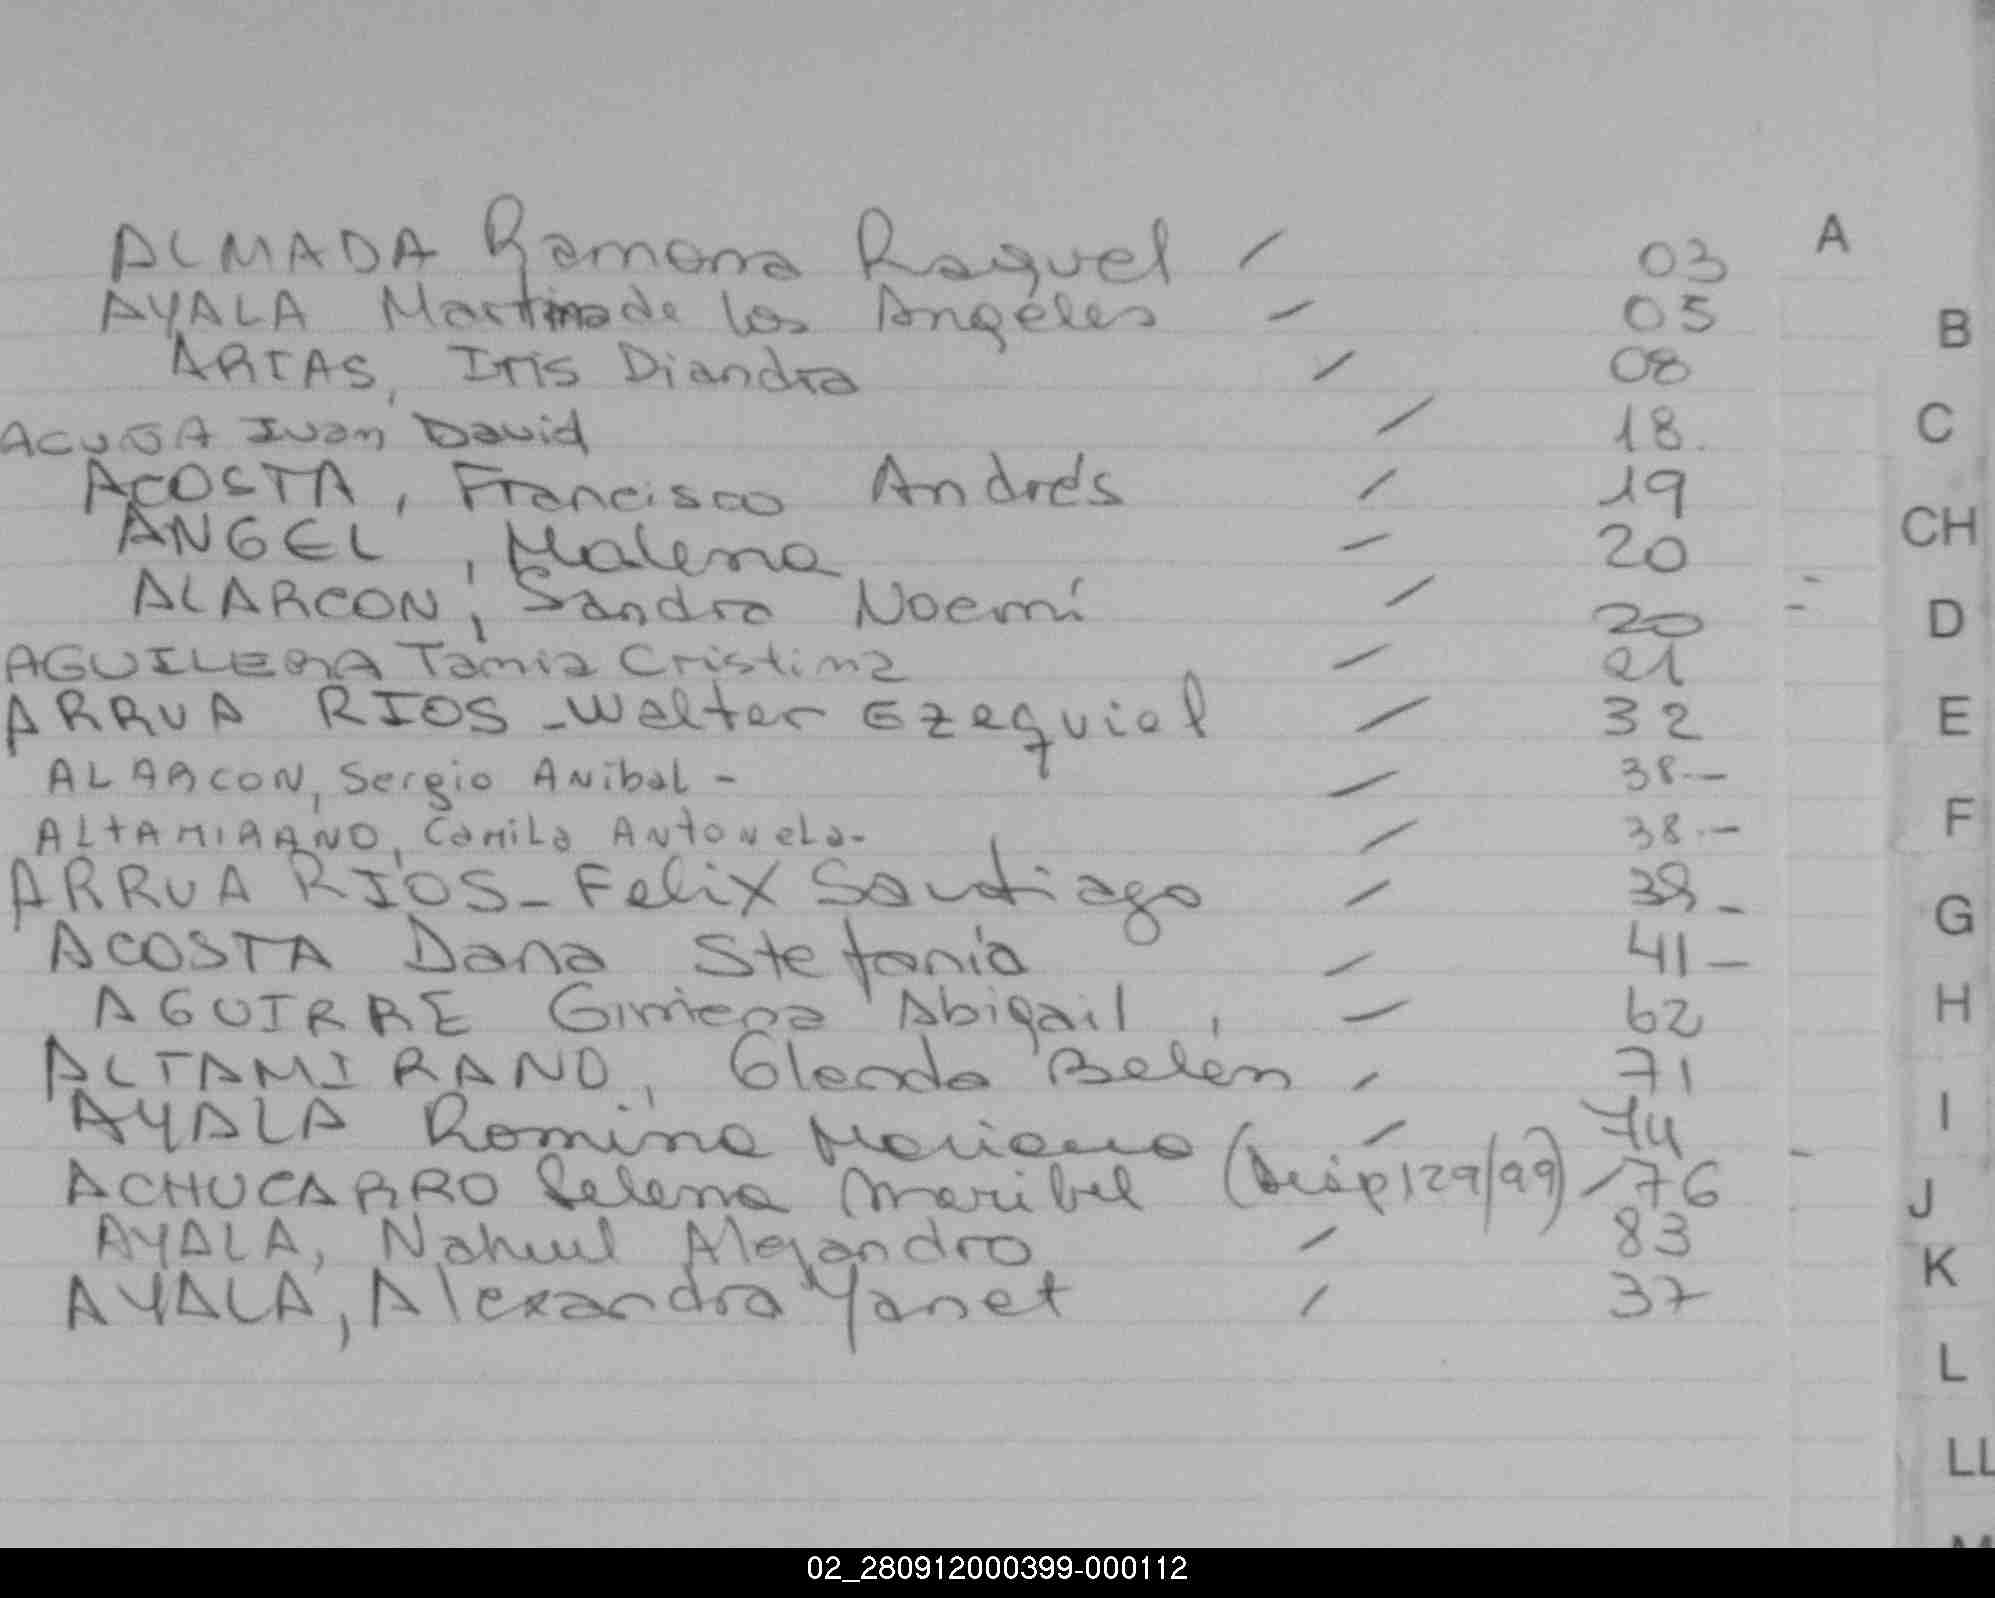 ALMADA Ramona Raquel / 03
AYALA Martina de los Angeles / 05
ARIAS, Iris Diandra / 08
ACUÑA Ivan David / 18.
ACOSTA, Francisco Andrés / 19
ANGEL, Malena / 20
ALARCON, Sandra Noemí / 20
AGUILERA Tamia Cristina / 21
ARRUA RIOS - Walter Ezequiel / 32
ALARCON, Sergio Anibal - / 38.-
ALTAMIRANO, Camila Antonela - / 38.-
ARRUA RIOS - Felix Santiago / 39 -
ACOSTA Dana Stefania / 41 -
AGUIRRE Gimena Abigail, / 62
ALTAMIRANO, Glenda Belén / 71
AYALA Romina Mariana / 74
ACHUCARRO Selena Maribel (Disp 129/99) / 76
AYALA, Nahuel Alejandro / 83
AYALA, Alexandra Yanet / 37
A
B
C
CH
D
E
F
G
H
I
J
K
L
LL
02_280912000399-000112